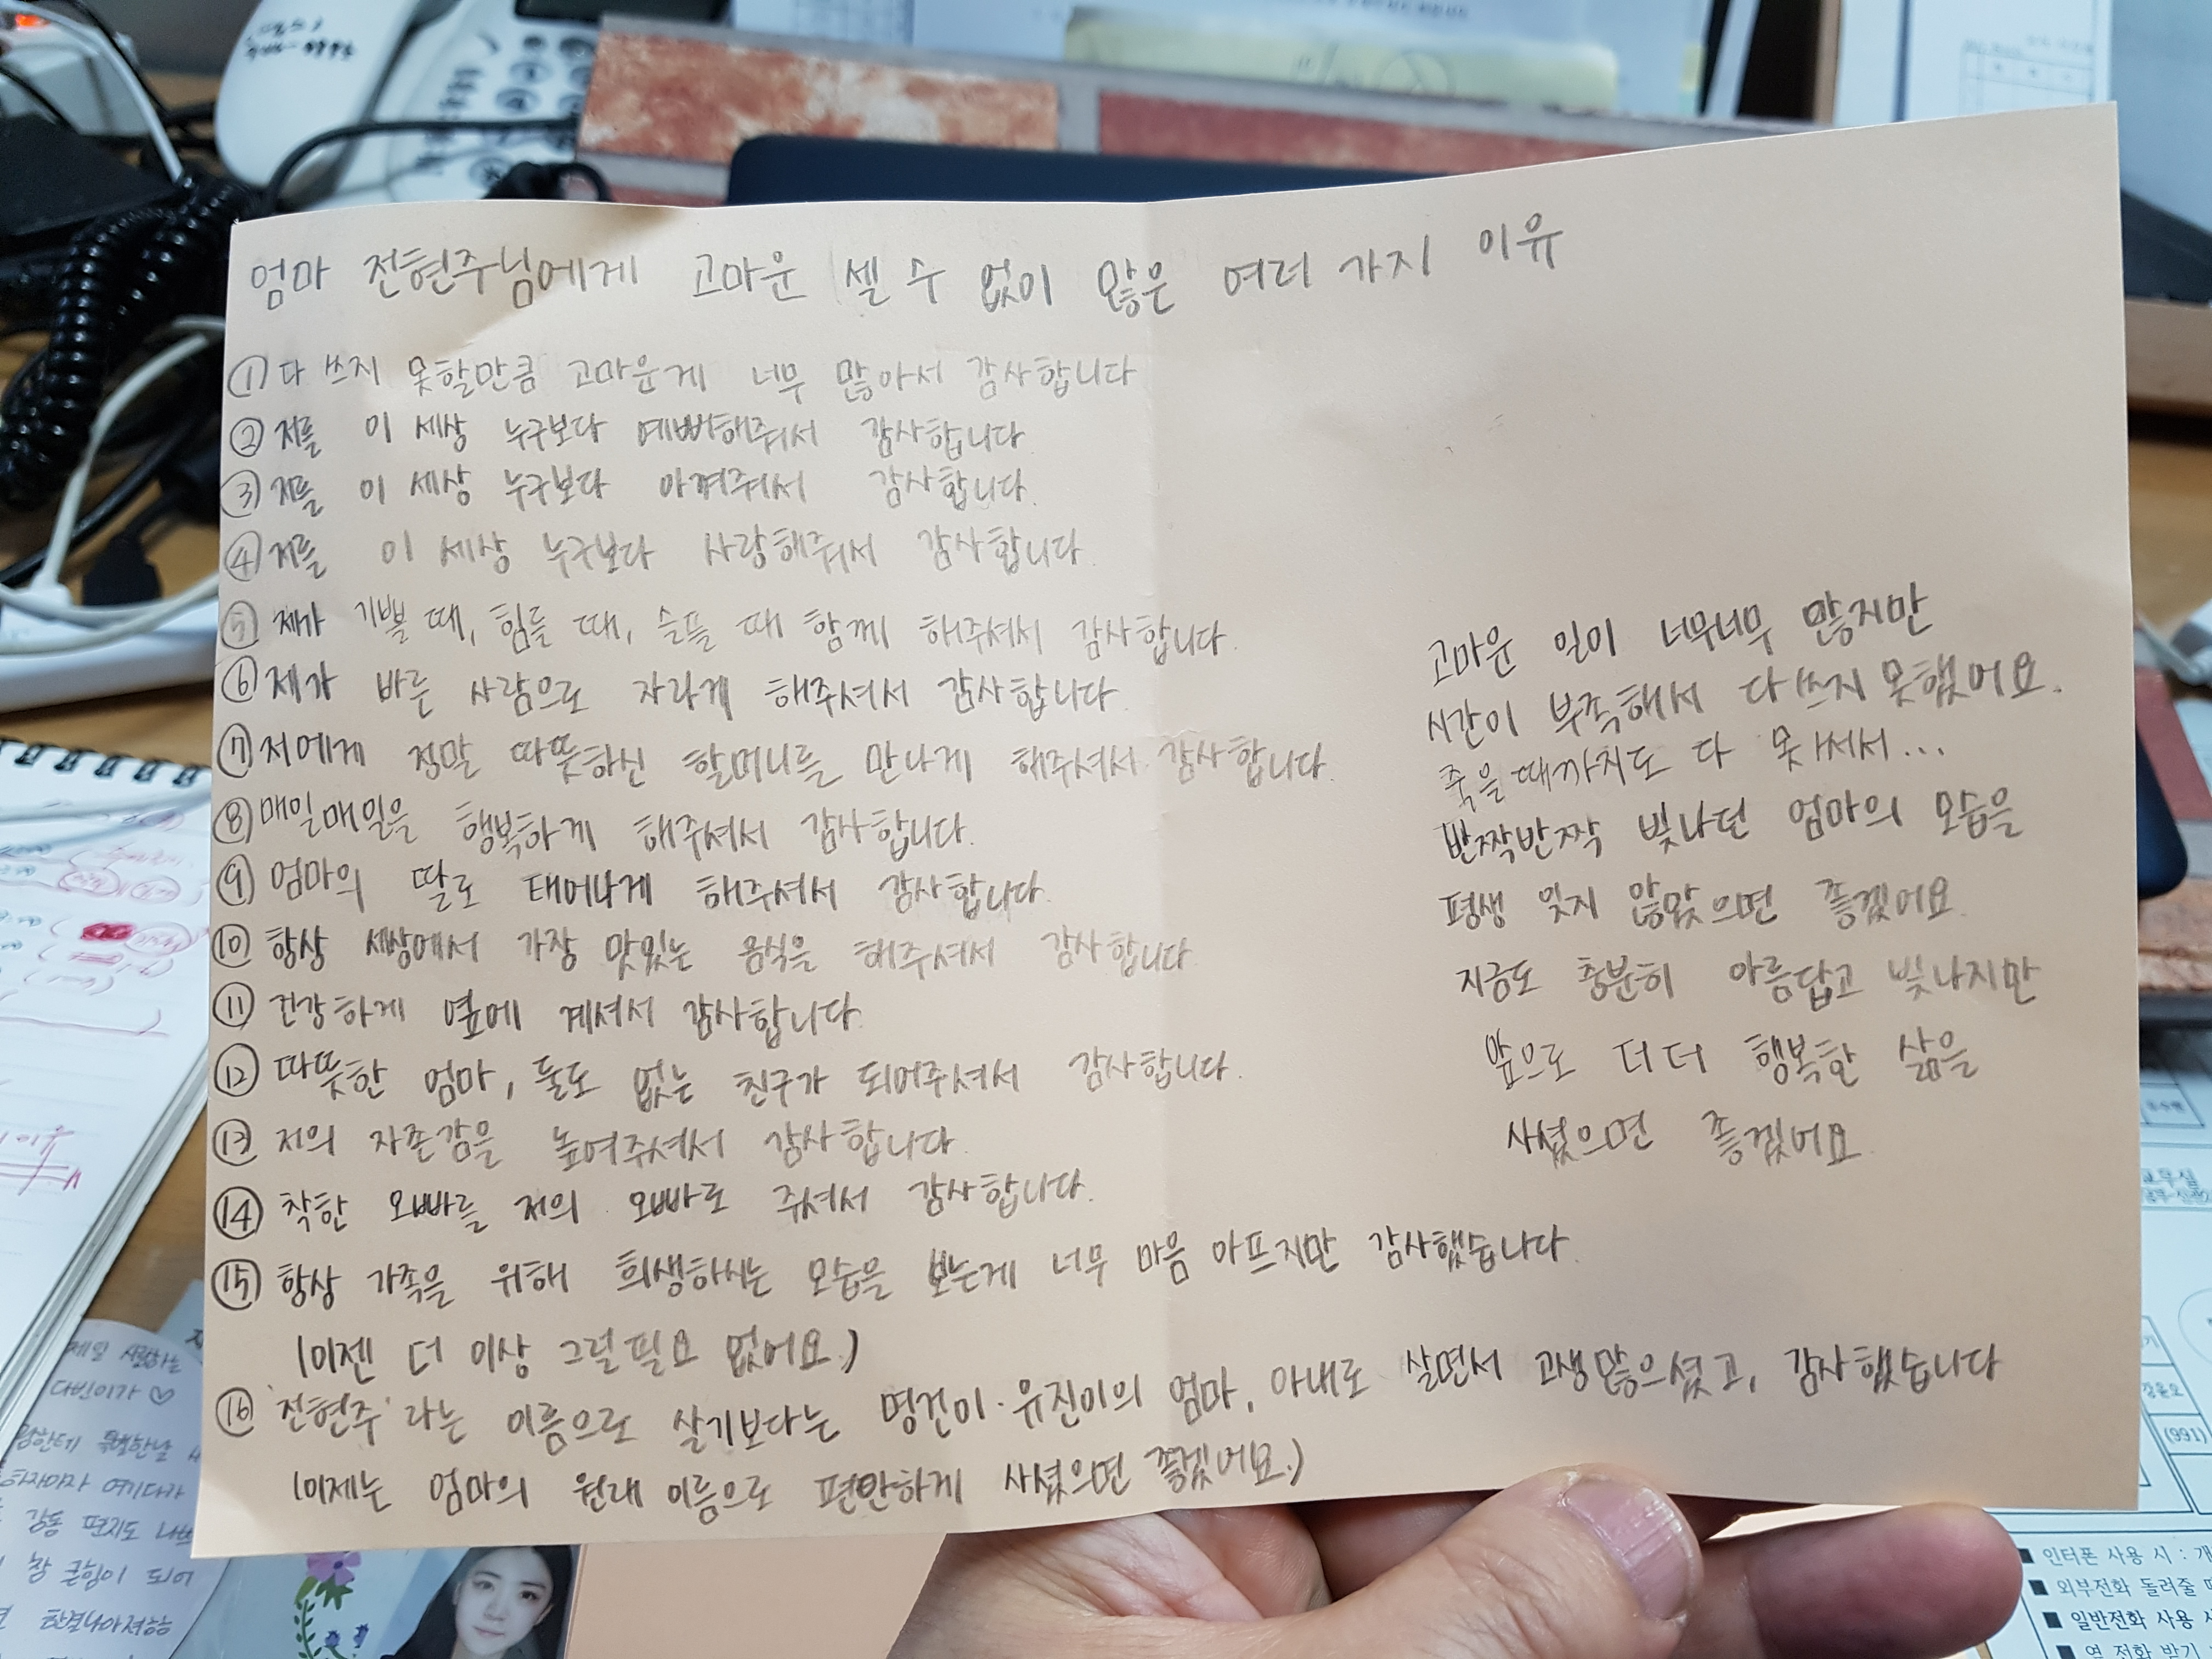 엄마 전현주님에게 고마운 셀 수 없이 많은 여러 가지 이유
① 다 쓰지 못할만큼 고마운게 너무 많아서 감사합니다
② 저를 이 세상 누구보다 예뻐해줘서 감사합니다
③ 저를 이 세상 누구보다 아껴줘서 감사합니다.
④ 저를 이 세상 누구보다 사랑해줘서 감사합니다.
⑤ 제가 기쁠 때, 힘들 때, 슬플 때 함께 해주셔서 감사합니다.
⑥ 제가 바른 사람으로 자라게 해주셔서 감사합니다.
⑦ 저에게 정말 따뜻하신 할머니를 만나게 해주셔서 감사합니다.
⑧ 매일매일을 행복하게 해주셔서 감사합니다.
⑨ 엄마의 딸로 태어나게 해주셔서 감사합니다.
⑩ 항상 세상에서 가장 맛있는 음식을 해주셔서 감사합니다.
⑪ 건강하게 옆에 계셔서 감사합니다.
⑫ 따뜻한 엄마, 둘도 없는 친구가 되어주셔서 감사합니다.
⑬ 저의 자존감을 높여주셔서 감사합니다.
⑭ 착한 오빠를 저의 오빠로 주셔서 감사합니다.
⑮ 항상 가족을 위해 희생하시는 모습을 보는게 너무 마음 아프지만 감사했습니다.
(이젠 더 이상 그럴필요 없어요.)
⑯ '전현주'라는 이름으로 살기보다는 명건이·유진이의 엄마, 아내로 살면서 고생많으셨고, 감사했습니다
(이제는 엄마의 원래 이름으로 편안하게 사셨으면 좋겠어요.)
고마운 일이 너무너무 많지만
시간이 부족해서 다 쓰지 못했어요.
죽을때까지도 다 못써서...
반짝반짝 빛나던 엄마의 모습을
평생 잊지 않았으면 좋겠어요.
지금도 충분히 아름답고 빛나지만
앞으로 더더 행복한 삶을
사셨으면 좋겠어요.
제일 사랑하는
다빈이가 ♡
특별한날
여기다가
감동 편지도
참 큰힘이 되어
한결나아져
교무실
(991)
■ 인터폰 사용 시 : 개
■ 외부전화 돌려줄 때
■ 일반전화 사용 시